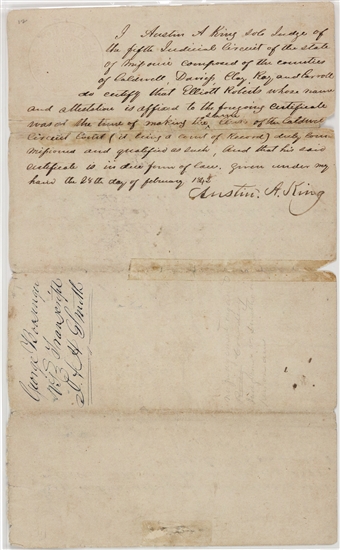 I Austin A King sole Judge of
the fifth Judicial Circuit of the state
of composed of the counties
of Caldwell Daviess Clay Ray and Carroll
do certify that Elliott Roberts whose name
and attestation is affixed to the foregoing certificate
was at the time of making the same of the Caldwell
Circuit Court (it being a court of Record) duly
and qualified as such, And that his said
certificate is in due form of Law. given under my
hand the 24th day of february 1843
Austin A. King
George
Transcript
Smith